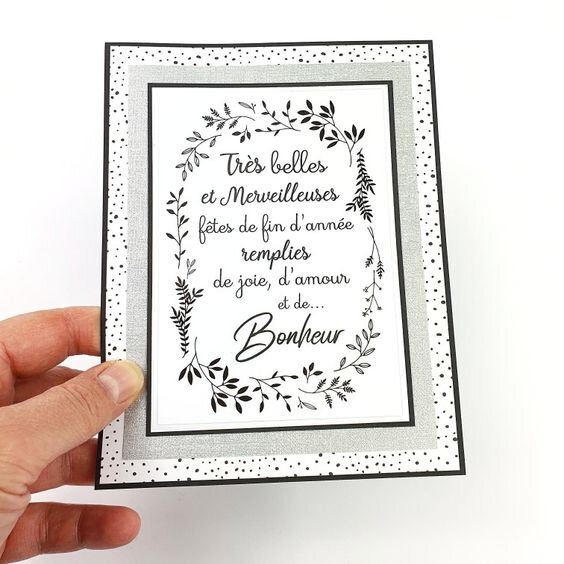 Très belles
et Merveilleuses
fêtes de fin d'année
remplies
de joie, d'amour
et de...
Bonheur